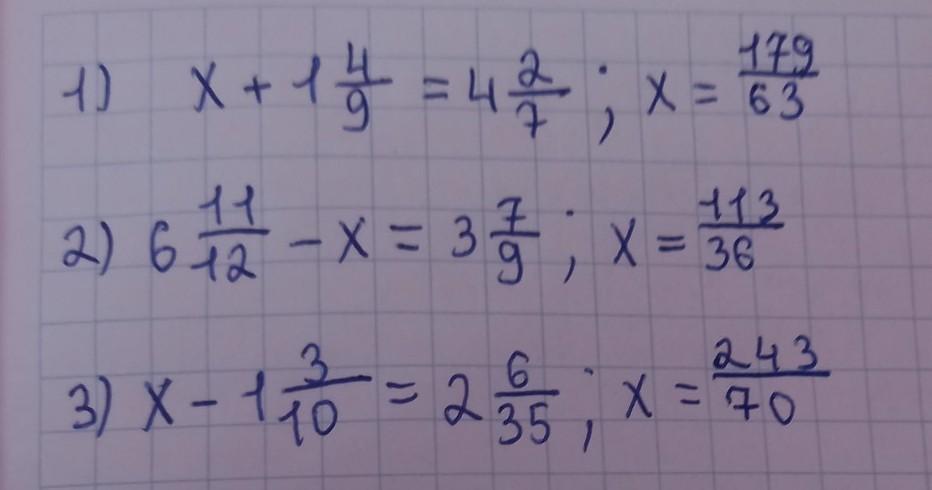 1) x + 1 4/9 = 4 2/7 ; x = 179/63
2) 6 11/12 - x = 3 7/9 ; x = 113/36
3) x - 1 3/10 = 2 6/35 ; x = 243/70